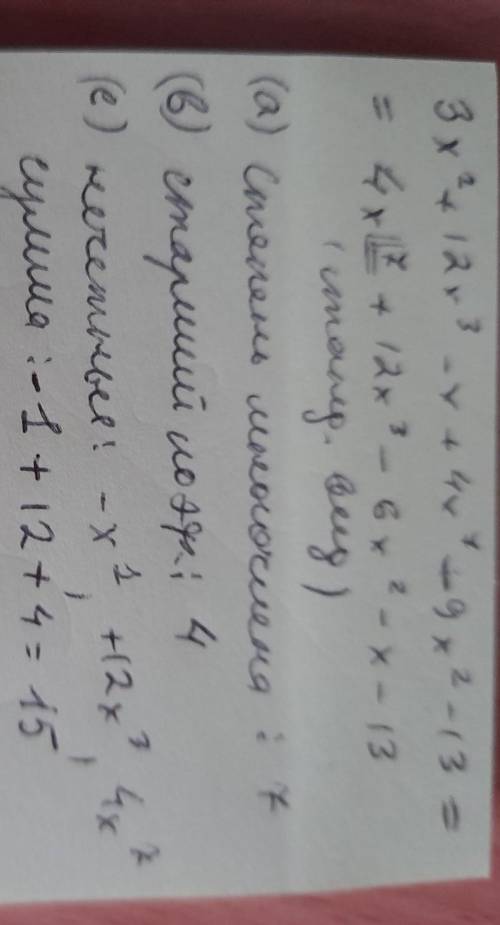 3x² + 12x³ - x + 4x⁷ - 9x² - 13 =
= 4x⁷ + 12x³ - 6x² - x - 13
(станд. вид)
(а) Степень многочлена: 7
(в) старший коэф.: 4
(с) нечетные: -x¹, +12x³, 4x⁷
сумма: -1 + 12 + 4 = 15